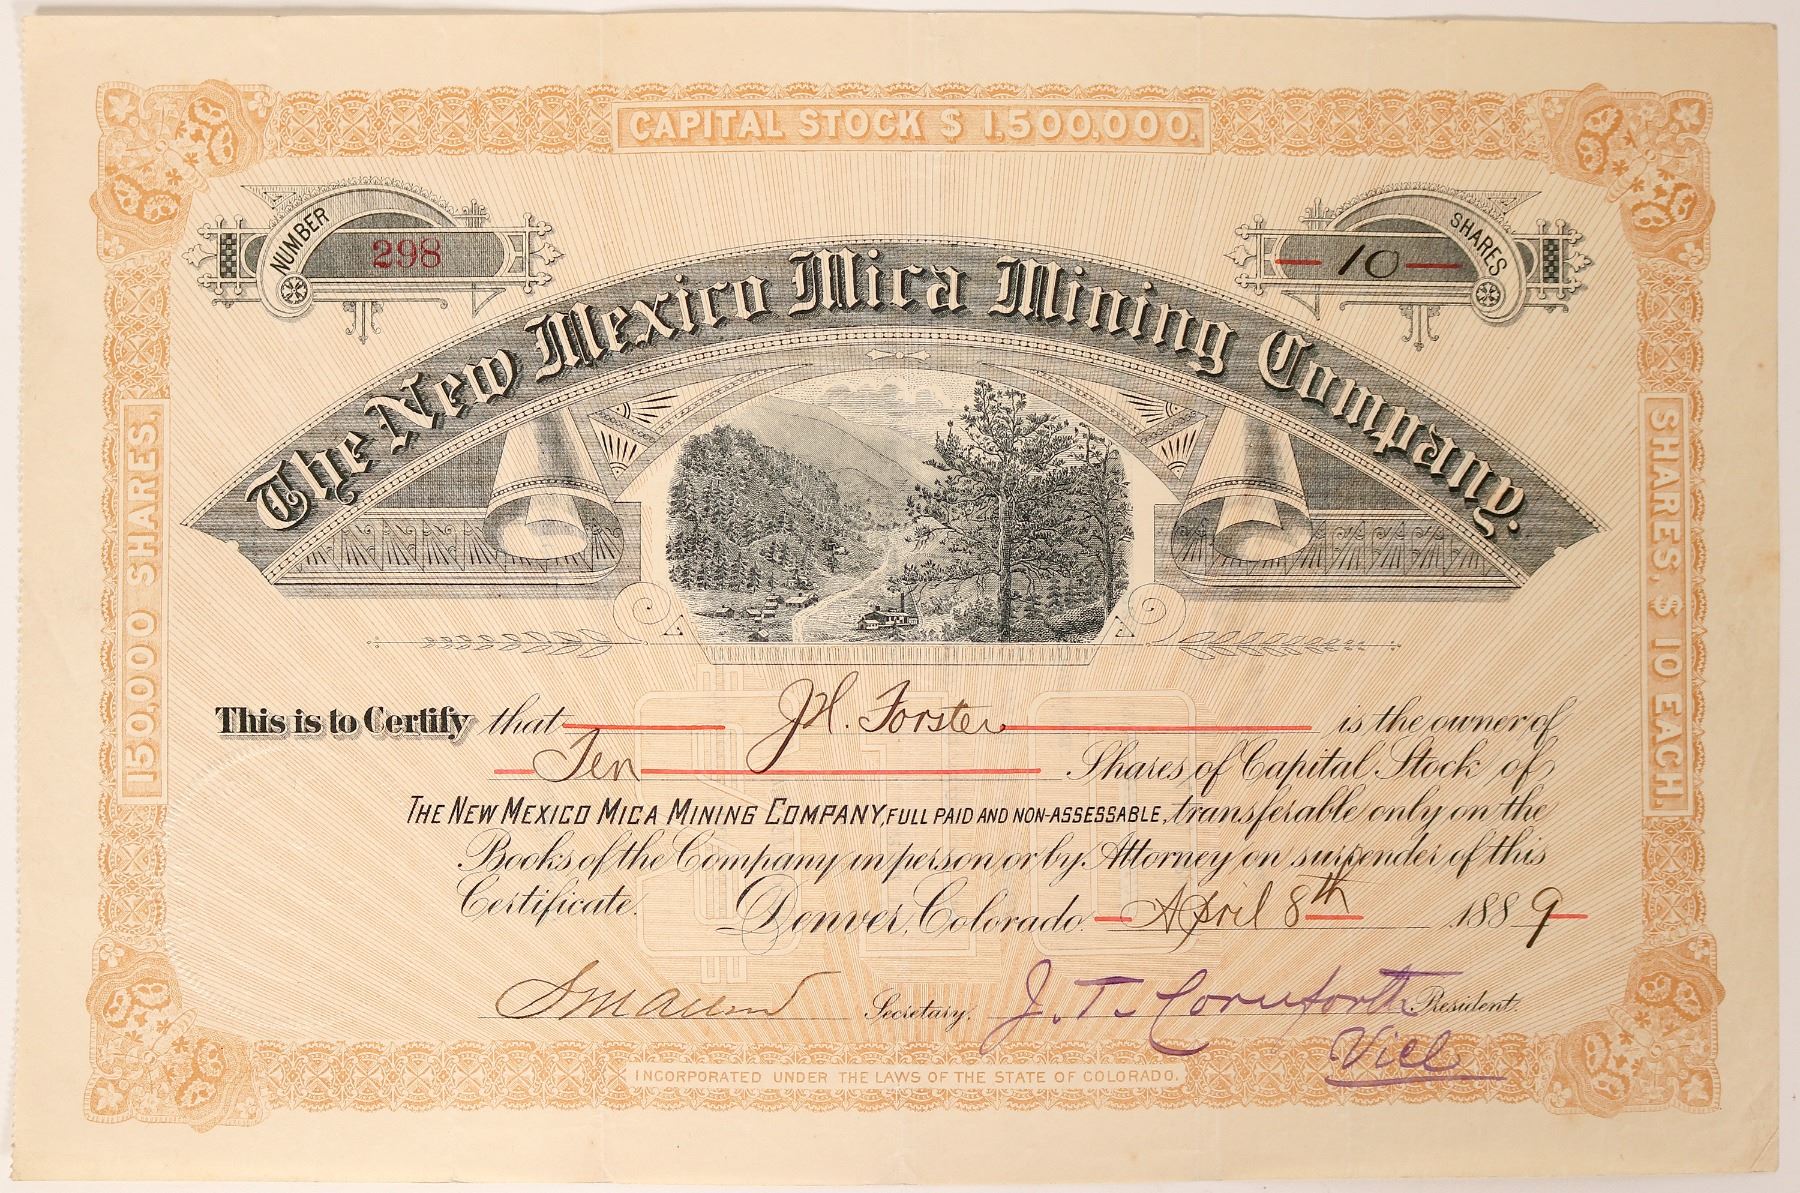 CAPITAL STOCK $ 1,500,000.
NUMBER
298
SHARES
— 10 —
The New Mexico Mica Mining Company.
150,000 SHARES.
SHARES, $ 10 EACH.
This is to Certify that J.H. Forster is the owner of
Ten Shares of Capital Stock of
THE NEW MEXICO MICA MINING COMPANY, FULL PAID AND NON-ASSESSABLE, transferable only on the
Books of the Company in person or by Attorney on surrender of this
Certificate. Denver, Colorado. April 8th 1889
Secretary. J. T. Cornforth President.
Vice
INCORPORATED UNDER THE LAWS OF THE STATE OF COLORADO.